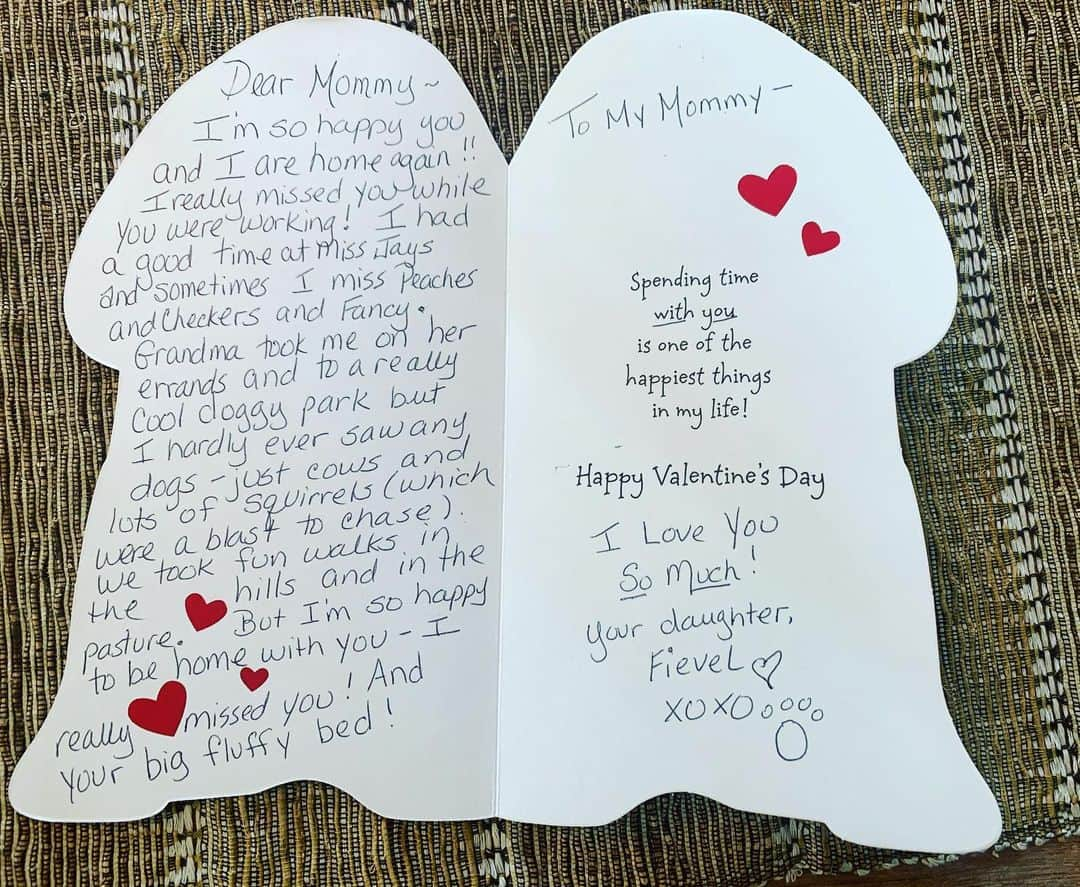 Dear Mommy~
I'm so happy you
and I are home again!!
I really missed you while
you were working! I had
a good time at Miss Jays
and sometimes I miss Peaches
and Checkers and Fancy.
Grandma took me on her
errands and to a really
cool doggy park but
I hardly ever saw any
dogs - just cows and
lots of squirrels (which
were a blast to chase).
We took fun walks in
the hills and in the
pasture. But I'm so happy
to be home with you - I
really missed you! And
your big fluffy bed!
To My Mommy -
Spending time
with you
is one of the
happiest things
in my life!
Happy Valentine's Day
I Love You
So Much!
your daughter,
Fievel
XOXO